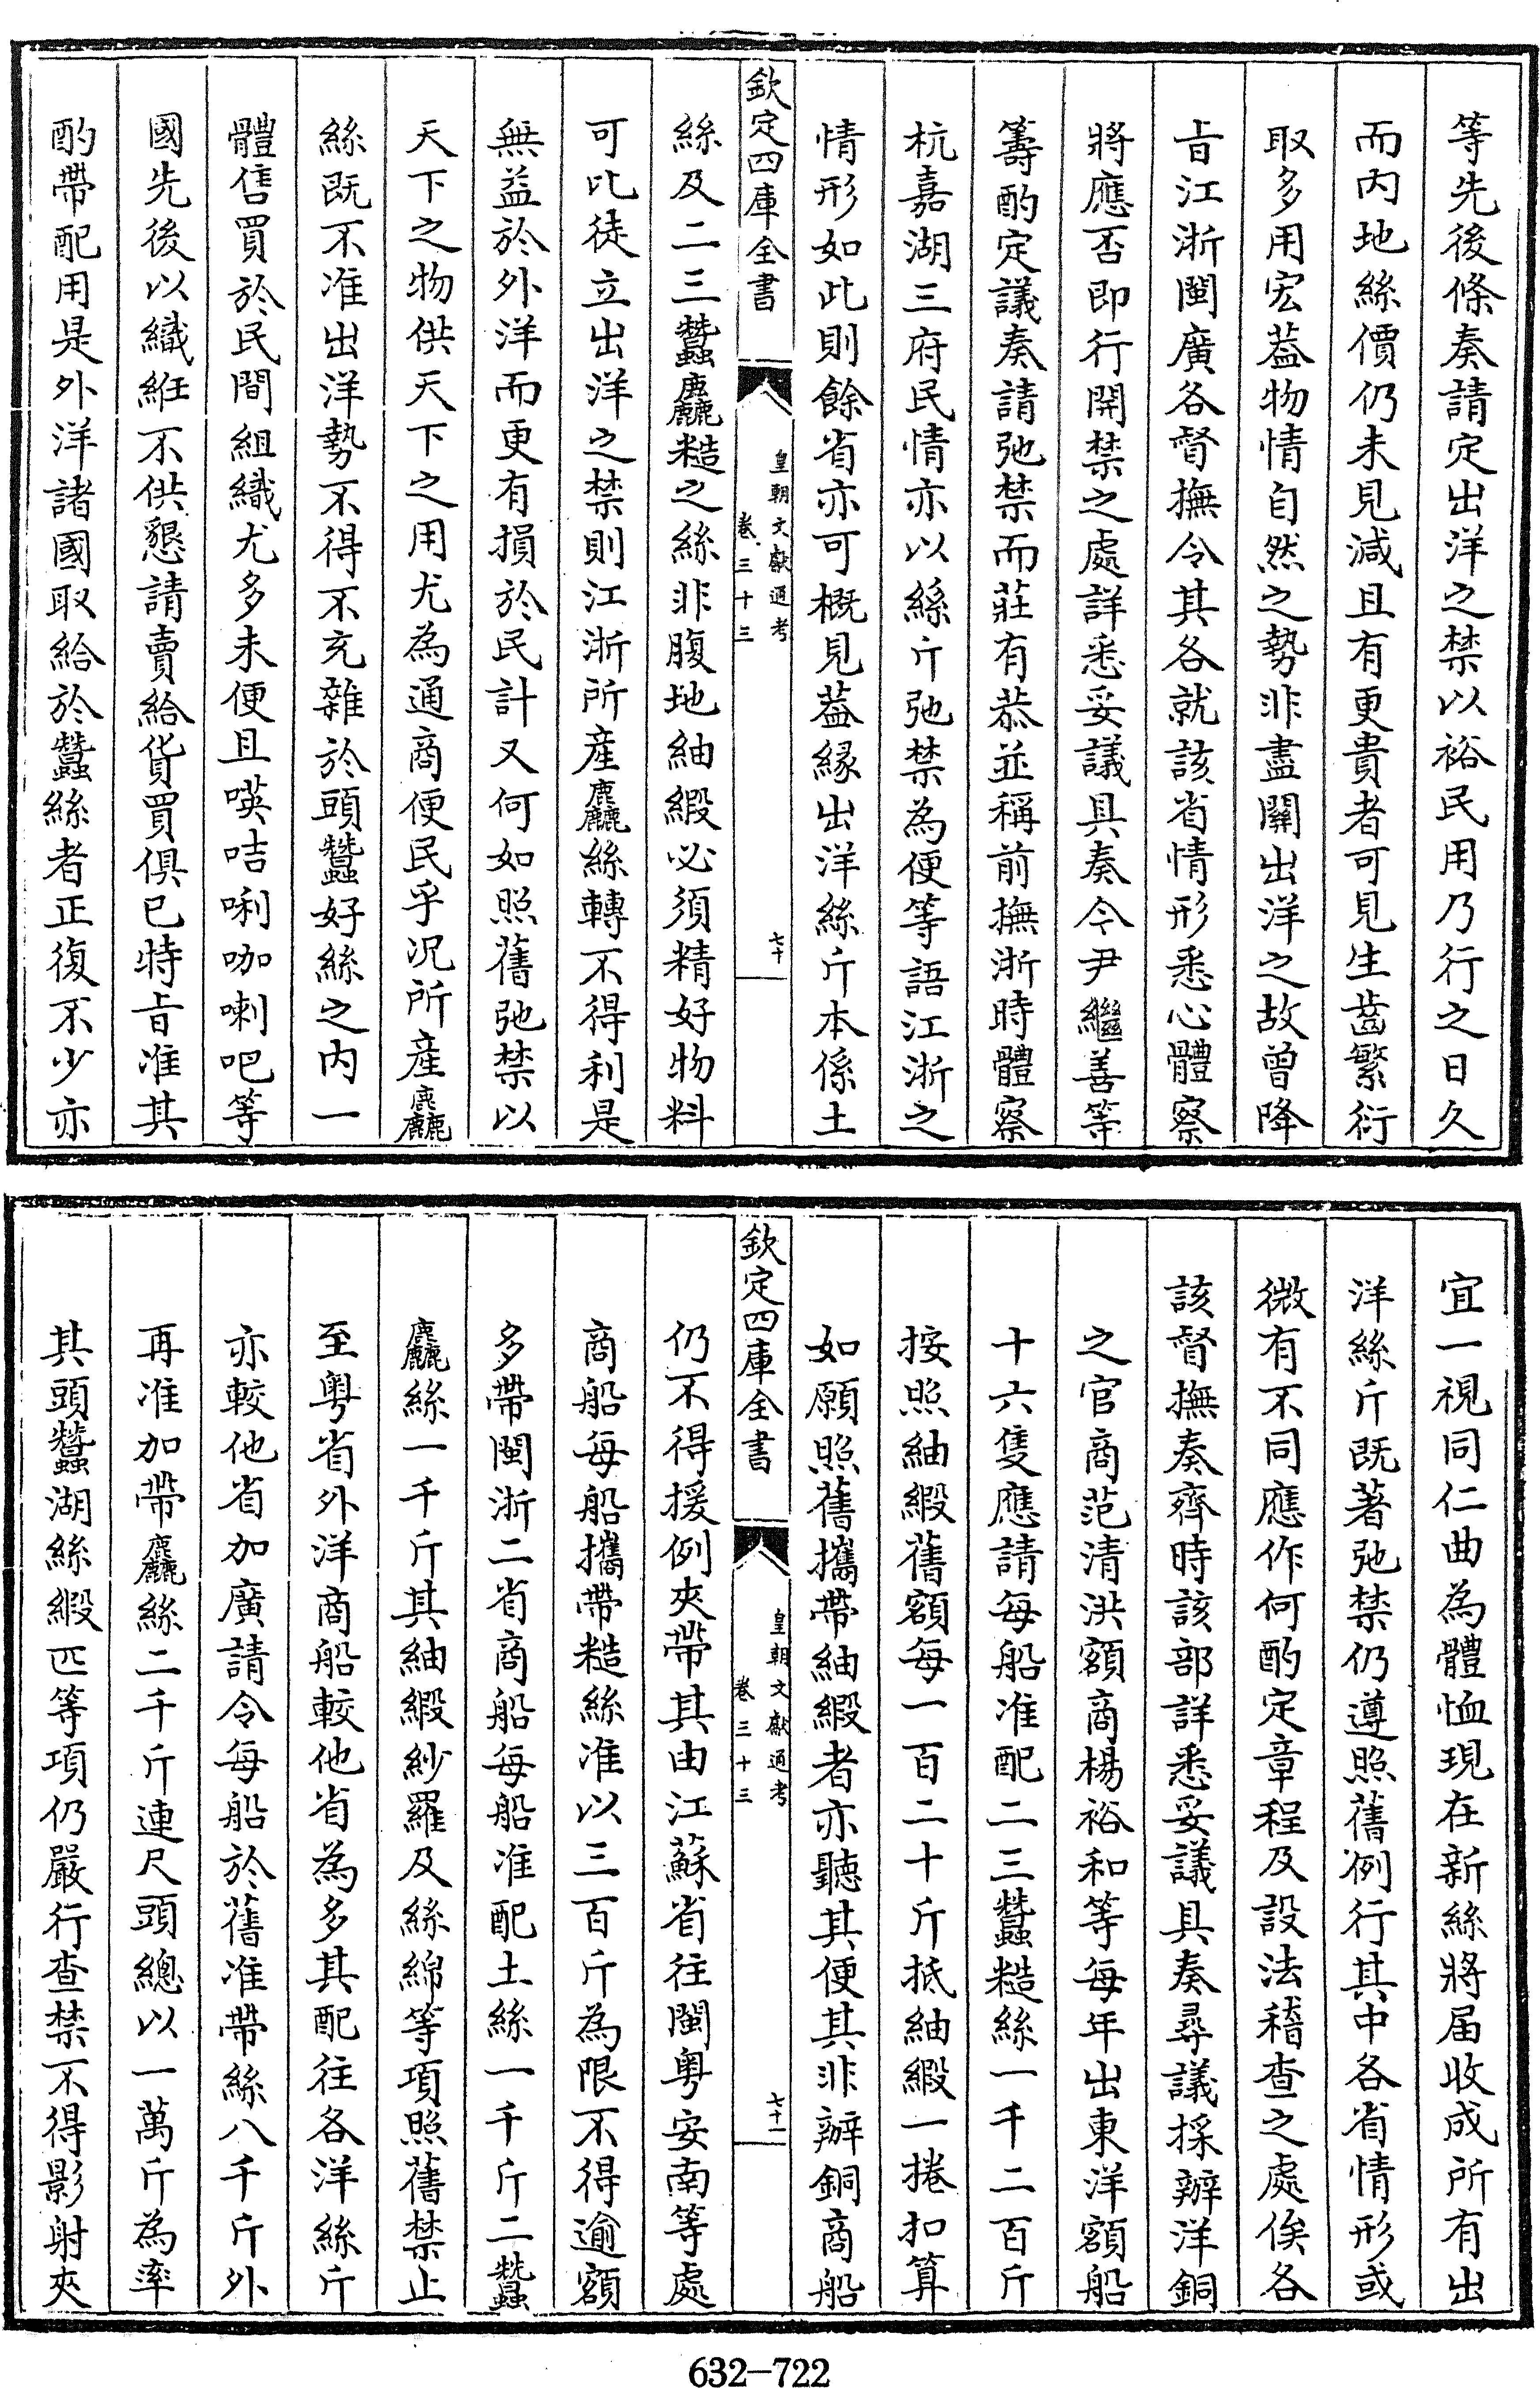 等先後條奏請定出洋之禁以裕民用乃行之日久
而内地絲價仍未見減且有更貴者可見生齒繁衍
取多用宏葢物情自然之勢非盡關出洋之故曾降
㫖江浙閩廣各督撫令其各就該省情形悉心體察
將應否即行開禁之處詳悉妥議具奏今尹繼善等
籌酌定議奏請弛禁而莊有恭並稱前撫浙時體察
杭嘉湖三府民情亦以絲斤弛禁為便等語江浙之
情形如此則餘省亦可概見葢緣出洋絲斤本係土
欽定四庫全書
皇朝文獻通考
卷三十三
七十
絲及二三蠶麤糙之絲非腹地紬緞必須精好物料
可比徒立出洋之禁則江浙所産麤絲轉不得利是
無益於外洋而更有損於民計又何如照舊弛禁以
天下之物供天下之用尤為通商便民乎况所産麤
絲既不准出洋勢不得不充雜於頭蠶好絲之内一
體售買於民間組織尤多未便且㗲咭唎咖喇吧等
國先後以織紝不供懇請賣給貨買俱已特㫖准其
酌帶配用是外洋諸國取給於蠶絲者正復不少亦
宜一視同仁曲為體恤現在新絲將届收成所有出
洋絲斤既著弛禁仍遵照舊例行其中各省情形或
微有不同應作何酌定章程及設法稽查之處俟各
該督撫奏齊時該部詳悉妥議具奏尋議採辦洋銅
之官商范清洪額商楊裕和等每年出東洋額船
十六隻應請每船准配二三蠶糙絲一千二百斤
按照紬緞舊額每一百二十斤抵紬緞一捲扣算
如願照舊攜帶紬緞者亦聽其便其非辦銅商船
欽定四庫全書
皇朝文獻通考
卷三十三
七十一
仍不得援例夾帶其由江蘇省往閩粤安南等處
商船每船攜帶糙絲准以三百斤為限不得逾額
多帶閩浙二省商船每船准配土絲一千斤二蠶
麤絲一千斤其紬緞紗羅及絲綿等項照舊禁止
至粤省外洋商船較他省為多其配往各洋絲斤
亦較他省加廣請令每船於舊准帶絲八千斤外
再准加帶麤絲二千斤連尺頭總以一萬斤為率
其頭蠶湖絲緞匹等項仍嚴行查禁不得影射夾
632-722